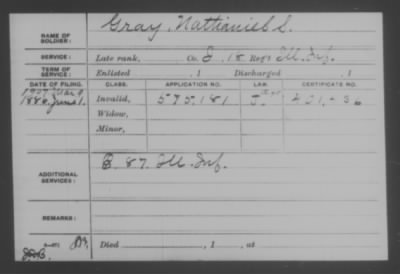 NAME OF SOLDIER: Gray, Nathaniel S.
SERVICE: Late rank, Co. G, 18 Reg't Ill. Inf.
TERM OF SERVICE: Enlisted , 1 Discharged , 1
DATE OF FILING. CLASS. APPLICATION NO. LAW. CERTIFICATE NO.
1907
1888. June 1. Invalid, 575.181
Widow,
Minor,
ADDITIONAL SERVICES: E. 87. Ill. Inf.
REMARKS:
Died , 1 , at